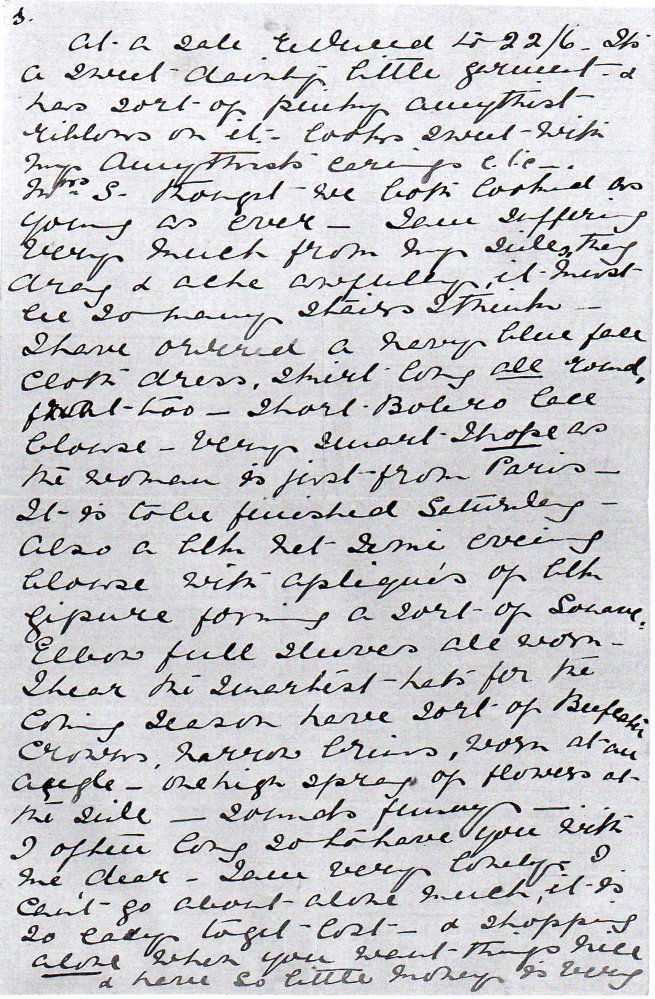 3.
at a sale reduced to 22/6 - Its
a sweet dainty little garment - &
has sort of pinky amythist
ribbons on it - looks sweet with
my Amythists earings etc -.
Mrs S. thought we both looked as
young as ever - I am suffering
very much from my sides, they
drag & ache awfully, it must
be so many stairs I think -
I have ordered a navy blue face
cloth dress, skirt long all round,
front too - Short Bolero lace
blouse - very smart I hope as
the woman is just from Paris -
It is to be finished Saturday -
Also a blk net Demi evening
blouse with apliqués of blk
gipure forming a sort of Square.
Elbow full sleeves are worn -
I hear the smartest hats for the
coming season have sort of
crowns, narrow brims, worn at an
angle - one high spray of flowers at
the side - sounds funny -
I often long so to have you with
me dear - I am very lonely, I
can't go about alone much, it is
so easy to get lost - & shopping
alone when you want things nice
& have so little money is very